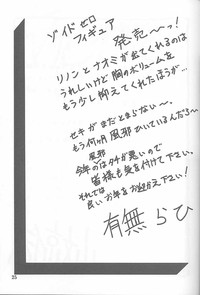 ゾイドゼロ
フィギュア
発売〜っ!
リノンとナオミが出てくれるのは
うれしいけど胸のボリュームを
もう少し抑えてくれたほうが…
セキがまだとまらない〜。
もう何日
風邪ひいているんだろ〜
風邪
今年のはタチが悪いので
皆様も気を付けて下さい。
それでは
良いお年をお迎え下さい!
有無らひ
25